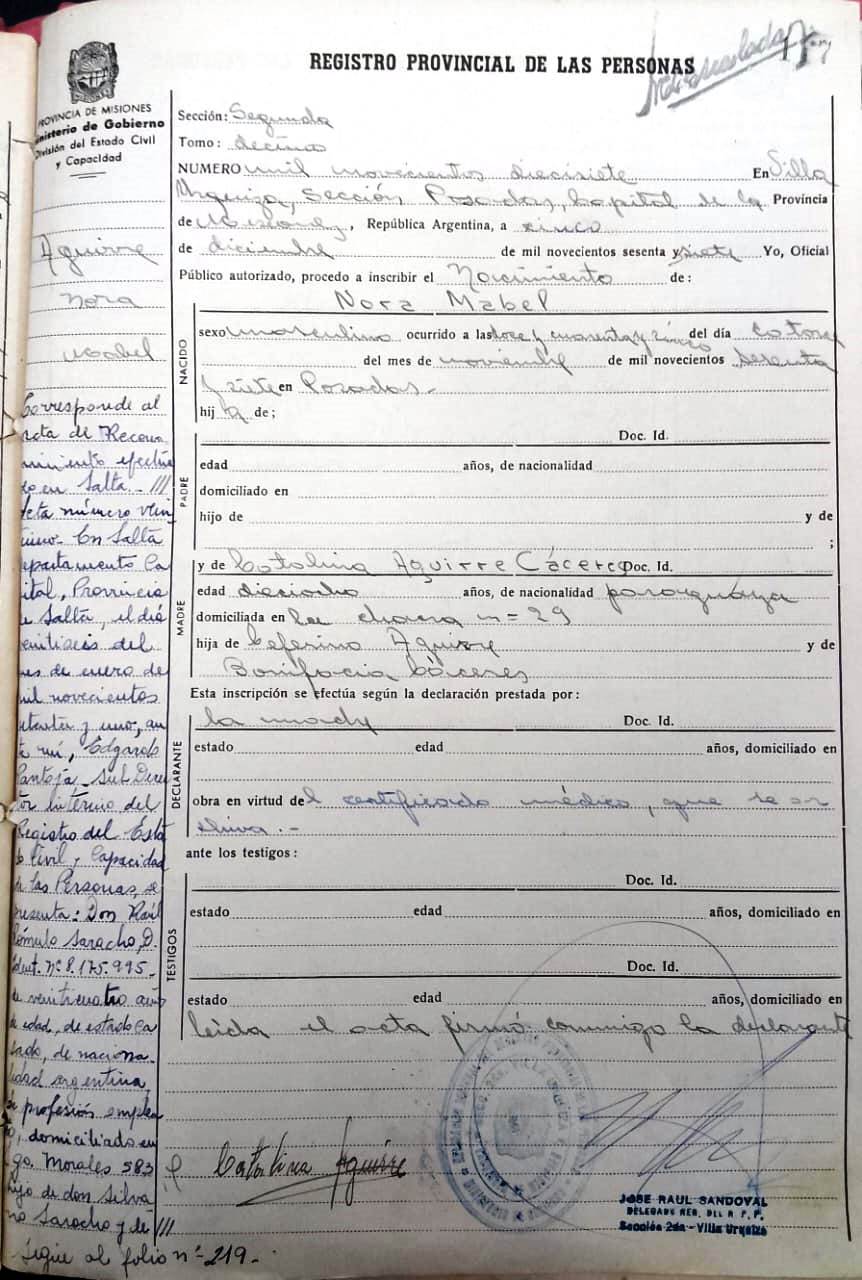 REGISTRO PROVINCIAL DE LAS PERSONAS
PROVINCIA DE MISIONES
Ministerio de Gobierno
División del Estado Civil
y Capacidad
Sección: Segunda
Tomo: decimo
NUMERO mil novecientos diecisiete En Villa
Urquiza, Sección Posadas, Capital de la Provincia
de Misiones, República Argentina, a cinco
de diciembre de mil novecientos sesenta y siete Yo, Oficial
Público autorizado, procedo a inscribir el Nacimiento de:
NACIDO
Nora Mabel
sexo masculino ocurrido a las doce y cuarenta y cinco del día catorce
del mes de noviembre de mil novecientos sesenta
y siete en Posadas.-
hija de;
PADRE
Doc. Id.
edad años, de nacionalidad
domiciliado en
hijo de y de
;
MADRE
y de Catalina Aguirre Cáceres Doc. Id.
edad dieciocho años, de nacionalidad paraguaya
domiciliada en la chacra n=29
hija de Ceferino Aguirre y de
Bonifacia Cáceres
Esta inscripción se efectúa según la declaración prestada por:
DECLARANTE
la madre Doc. Id.
estado edad años, domiciliado en
obra en virtud del certificado médico, que se ar
chiva.-
ante los testigos:
TESTIGOS
Doc. Id.
estado edad años, domiciliado en
Doc. Id.
estado edad años, domiciliado en
leida el acta firmó conmigo la declarante
Catalina Aguirre
JOSE RAUL SANDOVAL
DELEGADO REG. DEL R. P. P.
Sección 2da - Villa Urquiza
Aguirre
Nora
Mabel
Corresponde al
acta de Recono
cimiento efectua
do en Salta.- ///
Acta número vein
tiuno. En Salta
departamento Ca
pital, Provincia
de Salta, el día
veintiseis del
mes de enero de
mil novecientos
setenta y uno, an
te mí, Edgardo
Pantoja - Sub Direc
tor Interno del
Registro del Esta
do Civil y Capacidad
de las Personas, se
presenta: Don Raúl
Rómulo Saracho, D.
Ident. Nº 8.175.995.-
de veinticuatro años
de edad, de estado ca
sado, de naciona-
lidad argentina,
de profesión emplea
do, domiciliado en
Pgo. Morales 583
hijo de don Silva
no Saracho y de ///
Sigue al folio nº 219.-